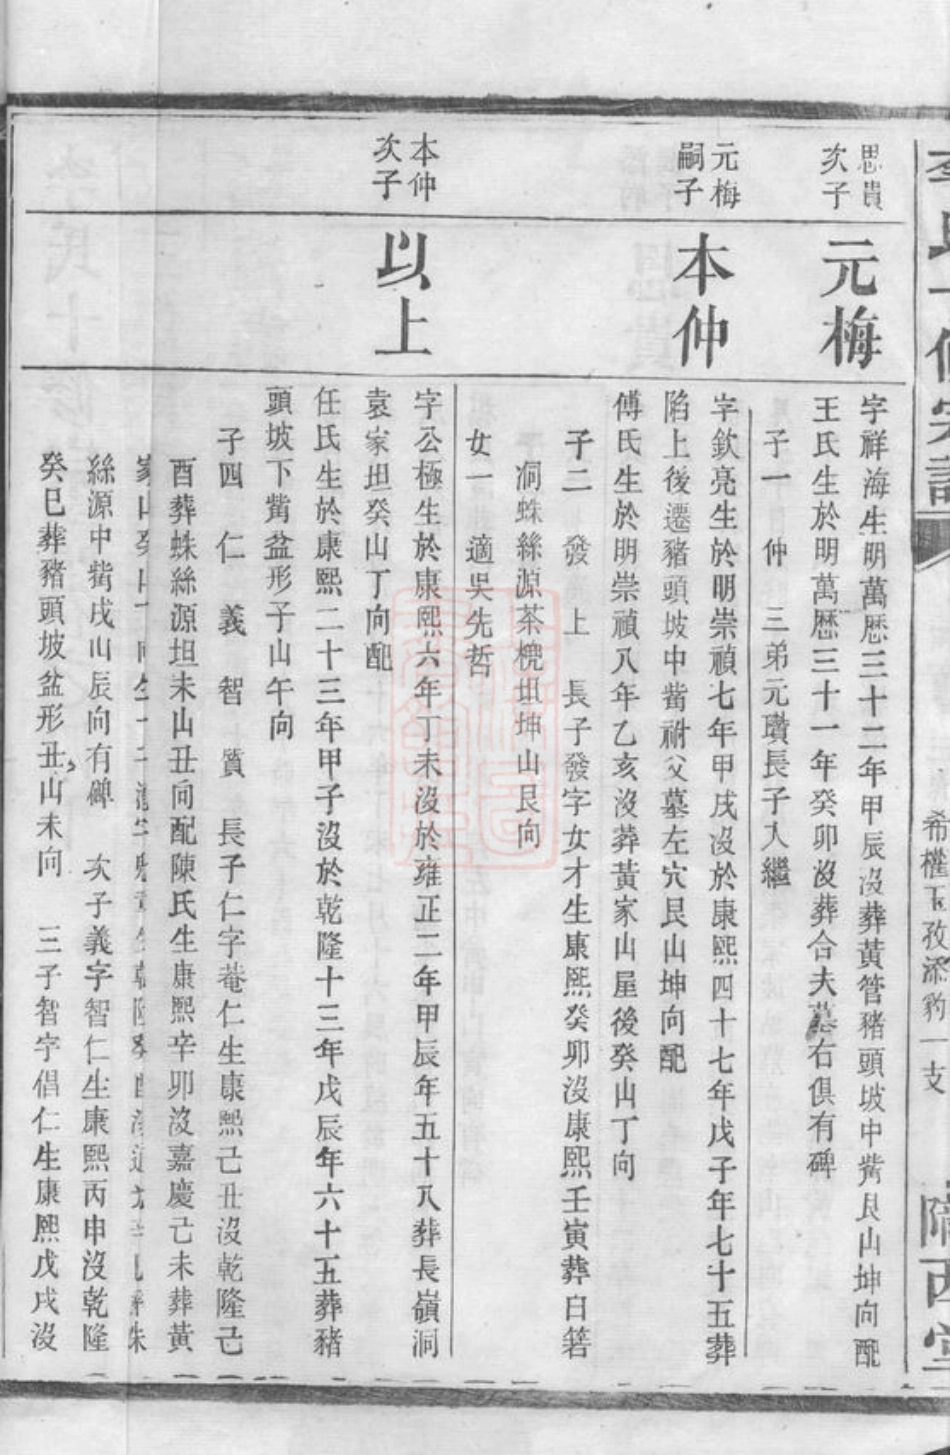 希權玉孜添豹一支
思貴
次子
元梅
字祥海生明萬歷三十二年甲辰沒葬黃管豬頭坡中觜艮山坤向配
王氏生於明萬歷三十一年癸卯沒葬合夫墓右俱有碑
子一　仲　三弟元瓚長子入繼
元梅
嗣子
本仲
字欽亮生於明崇禎七年甲戌沒於康熙四十七年戊子年七十五葬
陷上後遷豬頭坡中觜祔父墓左穴艮山坤向配
傅氏生於明崇禎八年乙亥沒葬黃家山屋後癸山丁向
子二　發　上　長子發字女才生康熙癸卯沒康熙壬寅葬白箬
洞蛛絲源茶欖坵坤山艮向
女一　適吳先哲
本仲
次子
以上
字公極生於康熙六年丁未沒於雍正二年甲辰年五十八葬長嶺洞
袁家坦癸山丁向配
任氏生於康熙二十三年甲子沒於乾隆十三年戊辰年六十五葬豬
頭坡下觜盆形子山午向
子四　仁　義　智　質　長子仁字菴仁生康熙己丑沒乾隆己
酉葬蛛絲源坦未山丑向配陳氏生康熙辛卯沒嘉慶己未葬黃
家山癸山丁向
絲源中觜戌山辰向有碑　次子義字智仁生康熙丙申沒乾隆
癸巳葬豬頭坡盆形丑山未向　三子智字倡仁生康熙戊戌沒